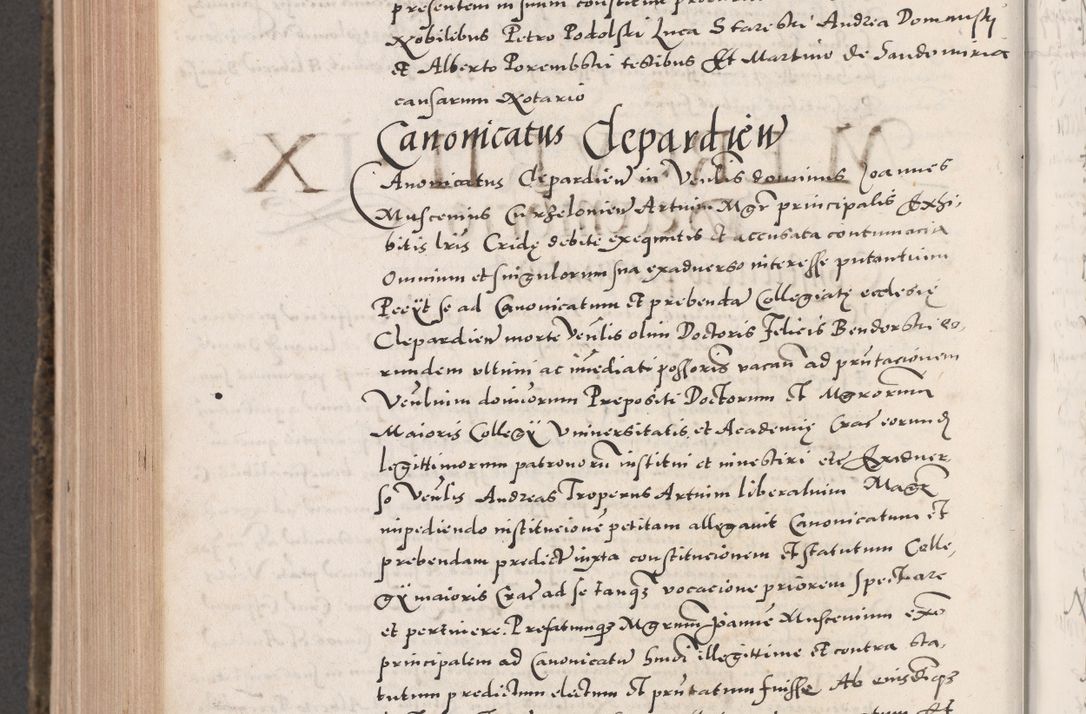 presentem in suum constituit procu
Nobilibus Petro Podolski Luca Stareski Andrea Domanskj
et Alberto Porembski testibus Et Martino de Sandomiria
causarum Notario
Canonicatus Clepardien
Canonicatus Clepardien in Venlis dominus Joannes
Muscenius Curzelonien Artium Mgr principalis Exhi-
bitis lris Cridę debite exequutis et accusata contumacia
Omnium et singulorum sua ex aduerso interesse putantium
Peciit se ad Canonicatum et prebenda Collegiatę ecclesię
Clepardien morte Venlis olim Doctoris Felicis Bendorski eo-
rundem vltimi ac imediati possoris vacan ad pntacionem
Venlium dominorum Prepositi Doctorum et Mgrorum
Maioris Collegij Vniuersitatis et Academię Crac eorumq
legittimorum patronorum institui et inuestiri etc Ex aduer-
so Venlis Andreas Troperus Artium liberalium Mag
impediendo institucione petitam allegauit Canonicatum et
prebendam predict iuxta constitucionem et statutum Colle-
gij maioris Crac ad se tanqz vocacione priorem spectare
et pertinere. Prefatumqz Mgrum Joanne Muscenium
principalem ad Canonicatu hmoi illegittime et contra sta-
tutum predictum electum et pntatum fuisse Ab eiusdemqz